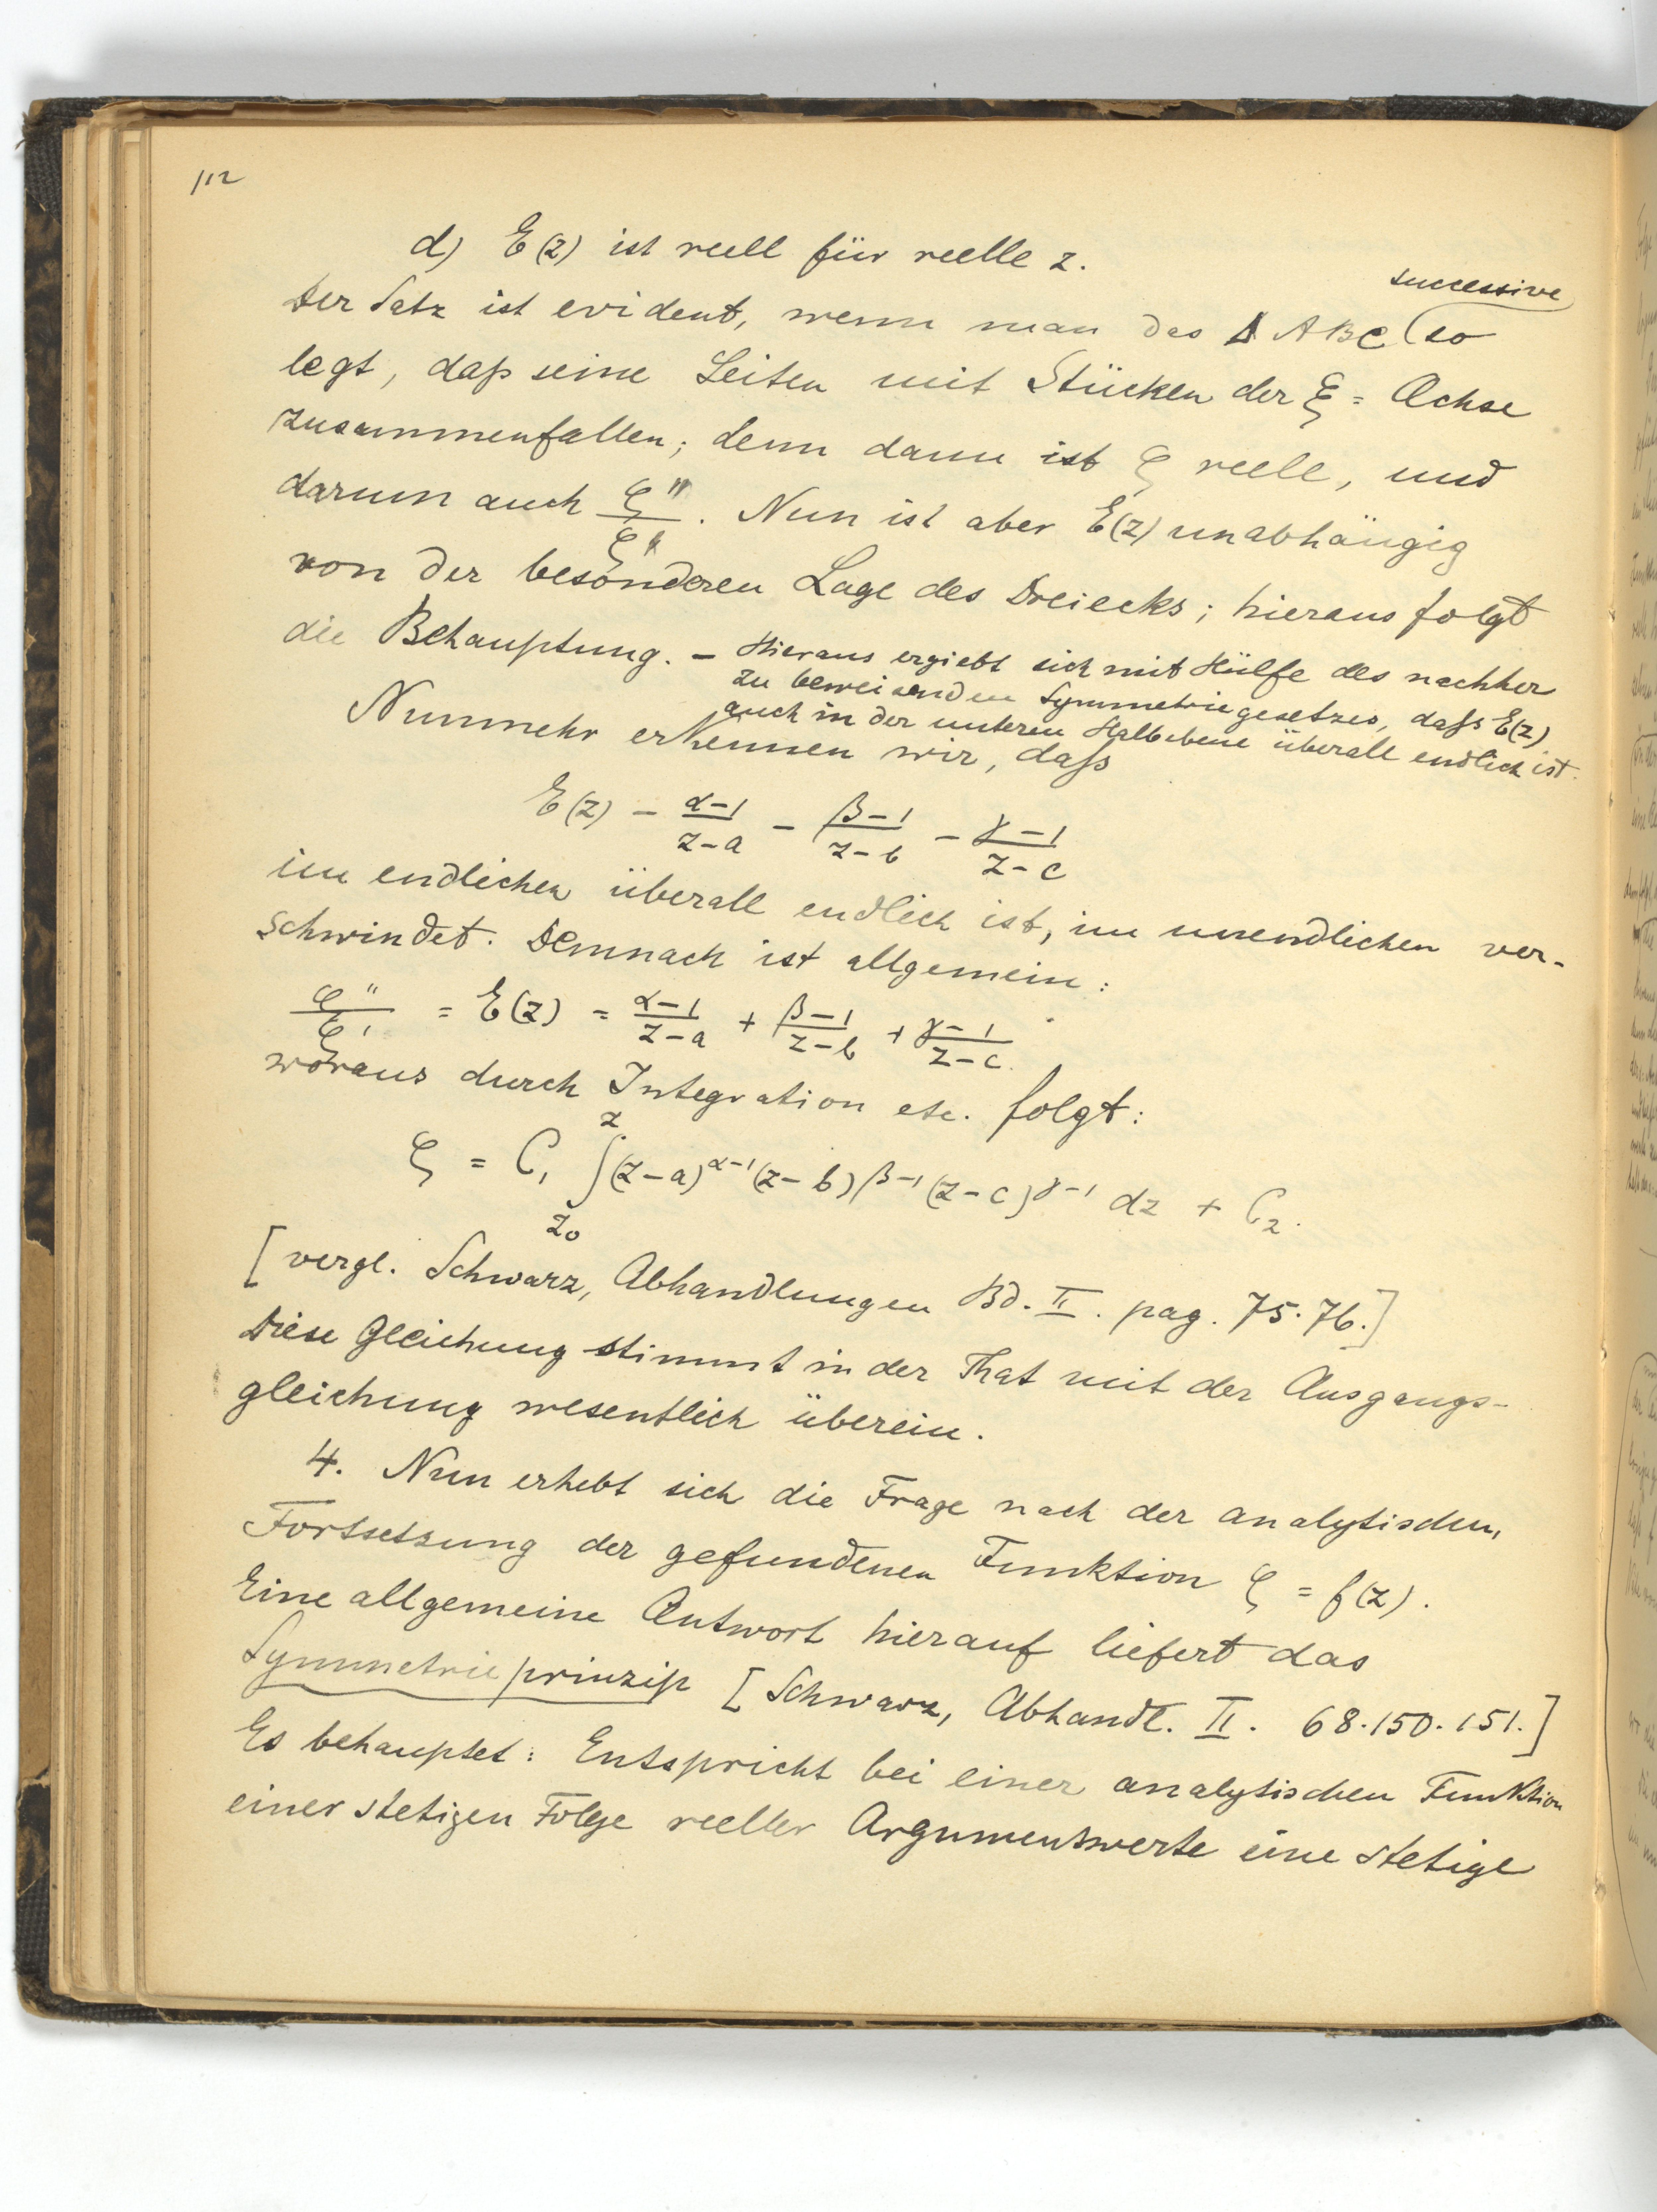 112
d) E(z) ist reell für reelle z.
Der Satz ist evident, wenn man das Δ ABC (successive so
legt, daß seine Seiten mit Stücken der ξ = Achse
zusammenfallen; denn dann ist ζ reell, und
darum auch ζ''/ζ'. Nun ist aber E(z) unabhängig
von der besonderen Lage des Dreiecks; hieraus folgt
die Behauptung. – Hieraus ergiebt sich mit Hülfe des nachher
zu beweisenden Symmetriegesetzes, dafs E(z)
auch in der unteren Halbebene überall endlich ist.
Nunmehr erkennen wir, dafs
E(z) – (α–1)/(z–a) – (β–1)/(z–b) – (γ–1)/(z–c)
im endlichen überall endlich ist, im unendlichen ver-
schwindet. Demnach ist allgemein:
ζ''/ζ' = E(z) = (α–1)/(z–a) + (β–1)/(z–b) + (γ–1)/(z–c).
woraus durch Integration etc. folgt:
ζ = C₁ ∫_{z₀}^{z} (z–a)^{α–1} (z–b)^{β–1} (z–c)^{γ–1} dz + C₂.
[vergl. Schwarz, Abhandlungen Bd. II. pag. 75. 76.]
Diese Gleichung stimmt in der That mit der Ausgangs-
gleichung wesentlich überein.
4. Nun erhebt sich die Frage nach der analytischen,
Fortsetzung der gefundenen Funktion ζ = f(z).
Eine allgemeine Antwort hierauf liefert das
Symmetrieprinzip [Schwarz, Abhandl. II. 68. 150. 151.]
Es behauptet: Entspricht bei einer analytischen Funktion
einer stetigen Folge reeller Argumentswerte eine stetige